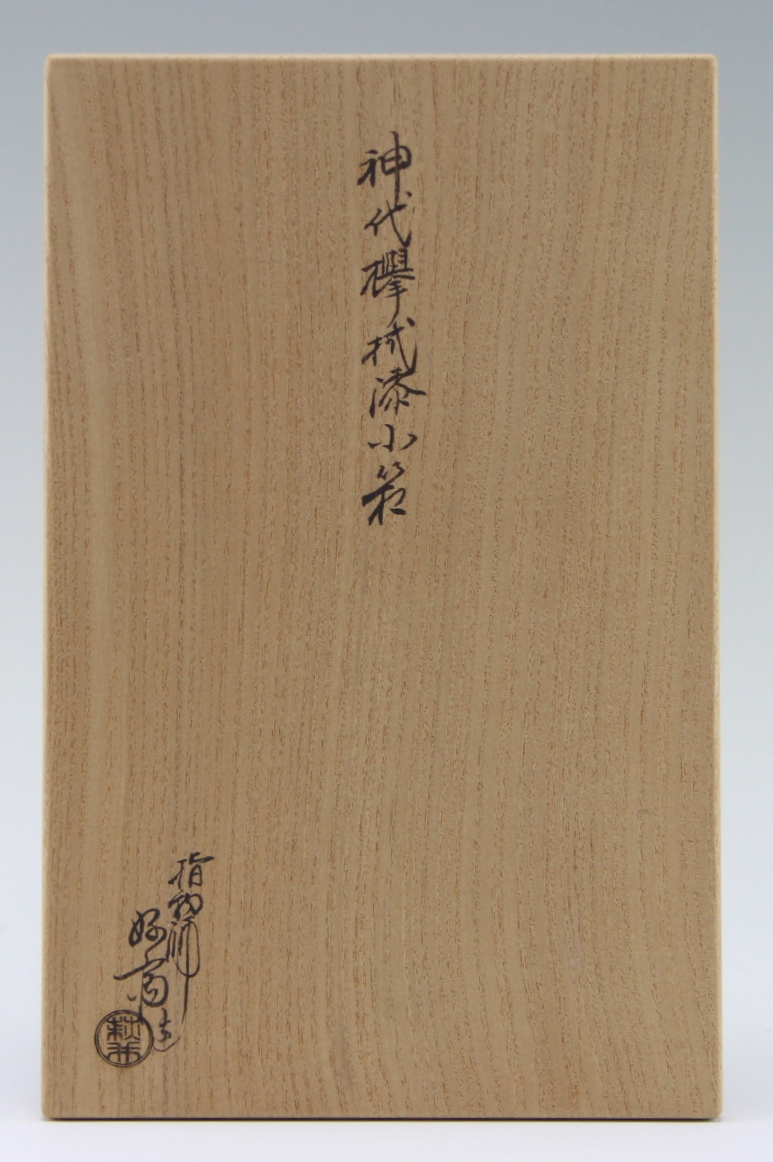 神代欅拭漆小箱
指物師
好斎造